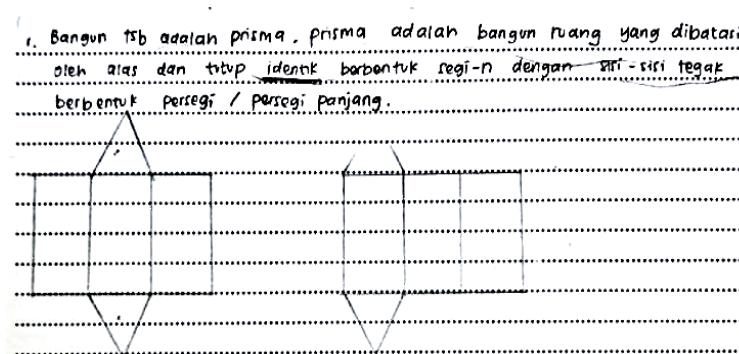 1. Bangun tsb adalah prisma. prisma adalah bangun ruang yang dibatasi
oleh alas dan tutup identik berbentuk segi-n dengan sisi-sisi tegak
berbentuk persegi / persegi panjang.